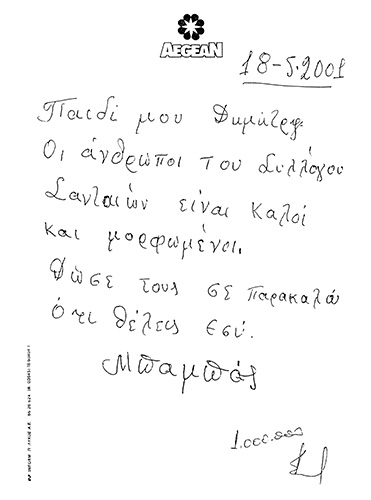 AEGEAN
18-5-2001
Παιδί μου Δημήτρη.
Οι άνθρωποι του Συλλόγου
Σανταιών είναι καλοί
και μορφωμένοι.
Δώσε τους σε παρακαλώ
ότι θέλεις εσύ.
Μπαμπάς
1.000.000